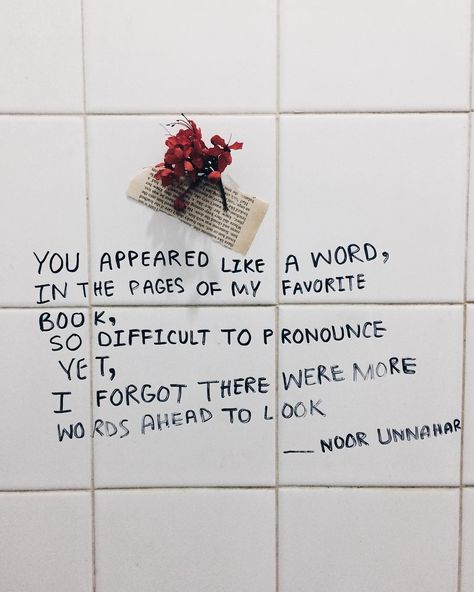 YOU APPEARED LIKE A WORD,
IN THE PAGES OF MY FAVORITE
BOOK,
SO DIFFICULT TO PRONOUNCE
YET,
I FORGOT THERE WERE MORE
WORDS AHEAD TO LOOK
— NOOR UNNAHAR